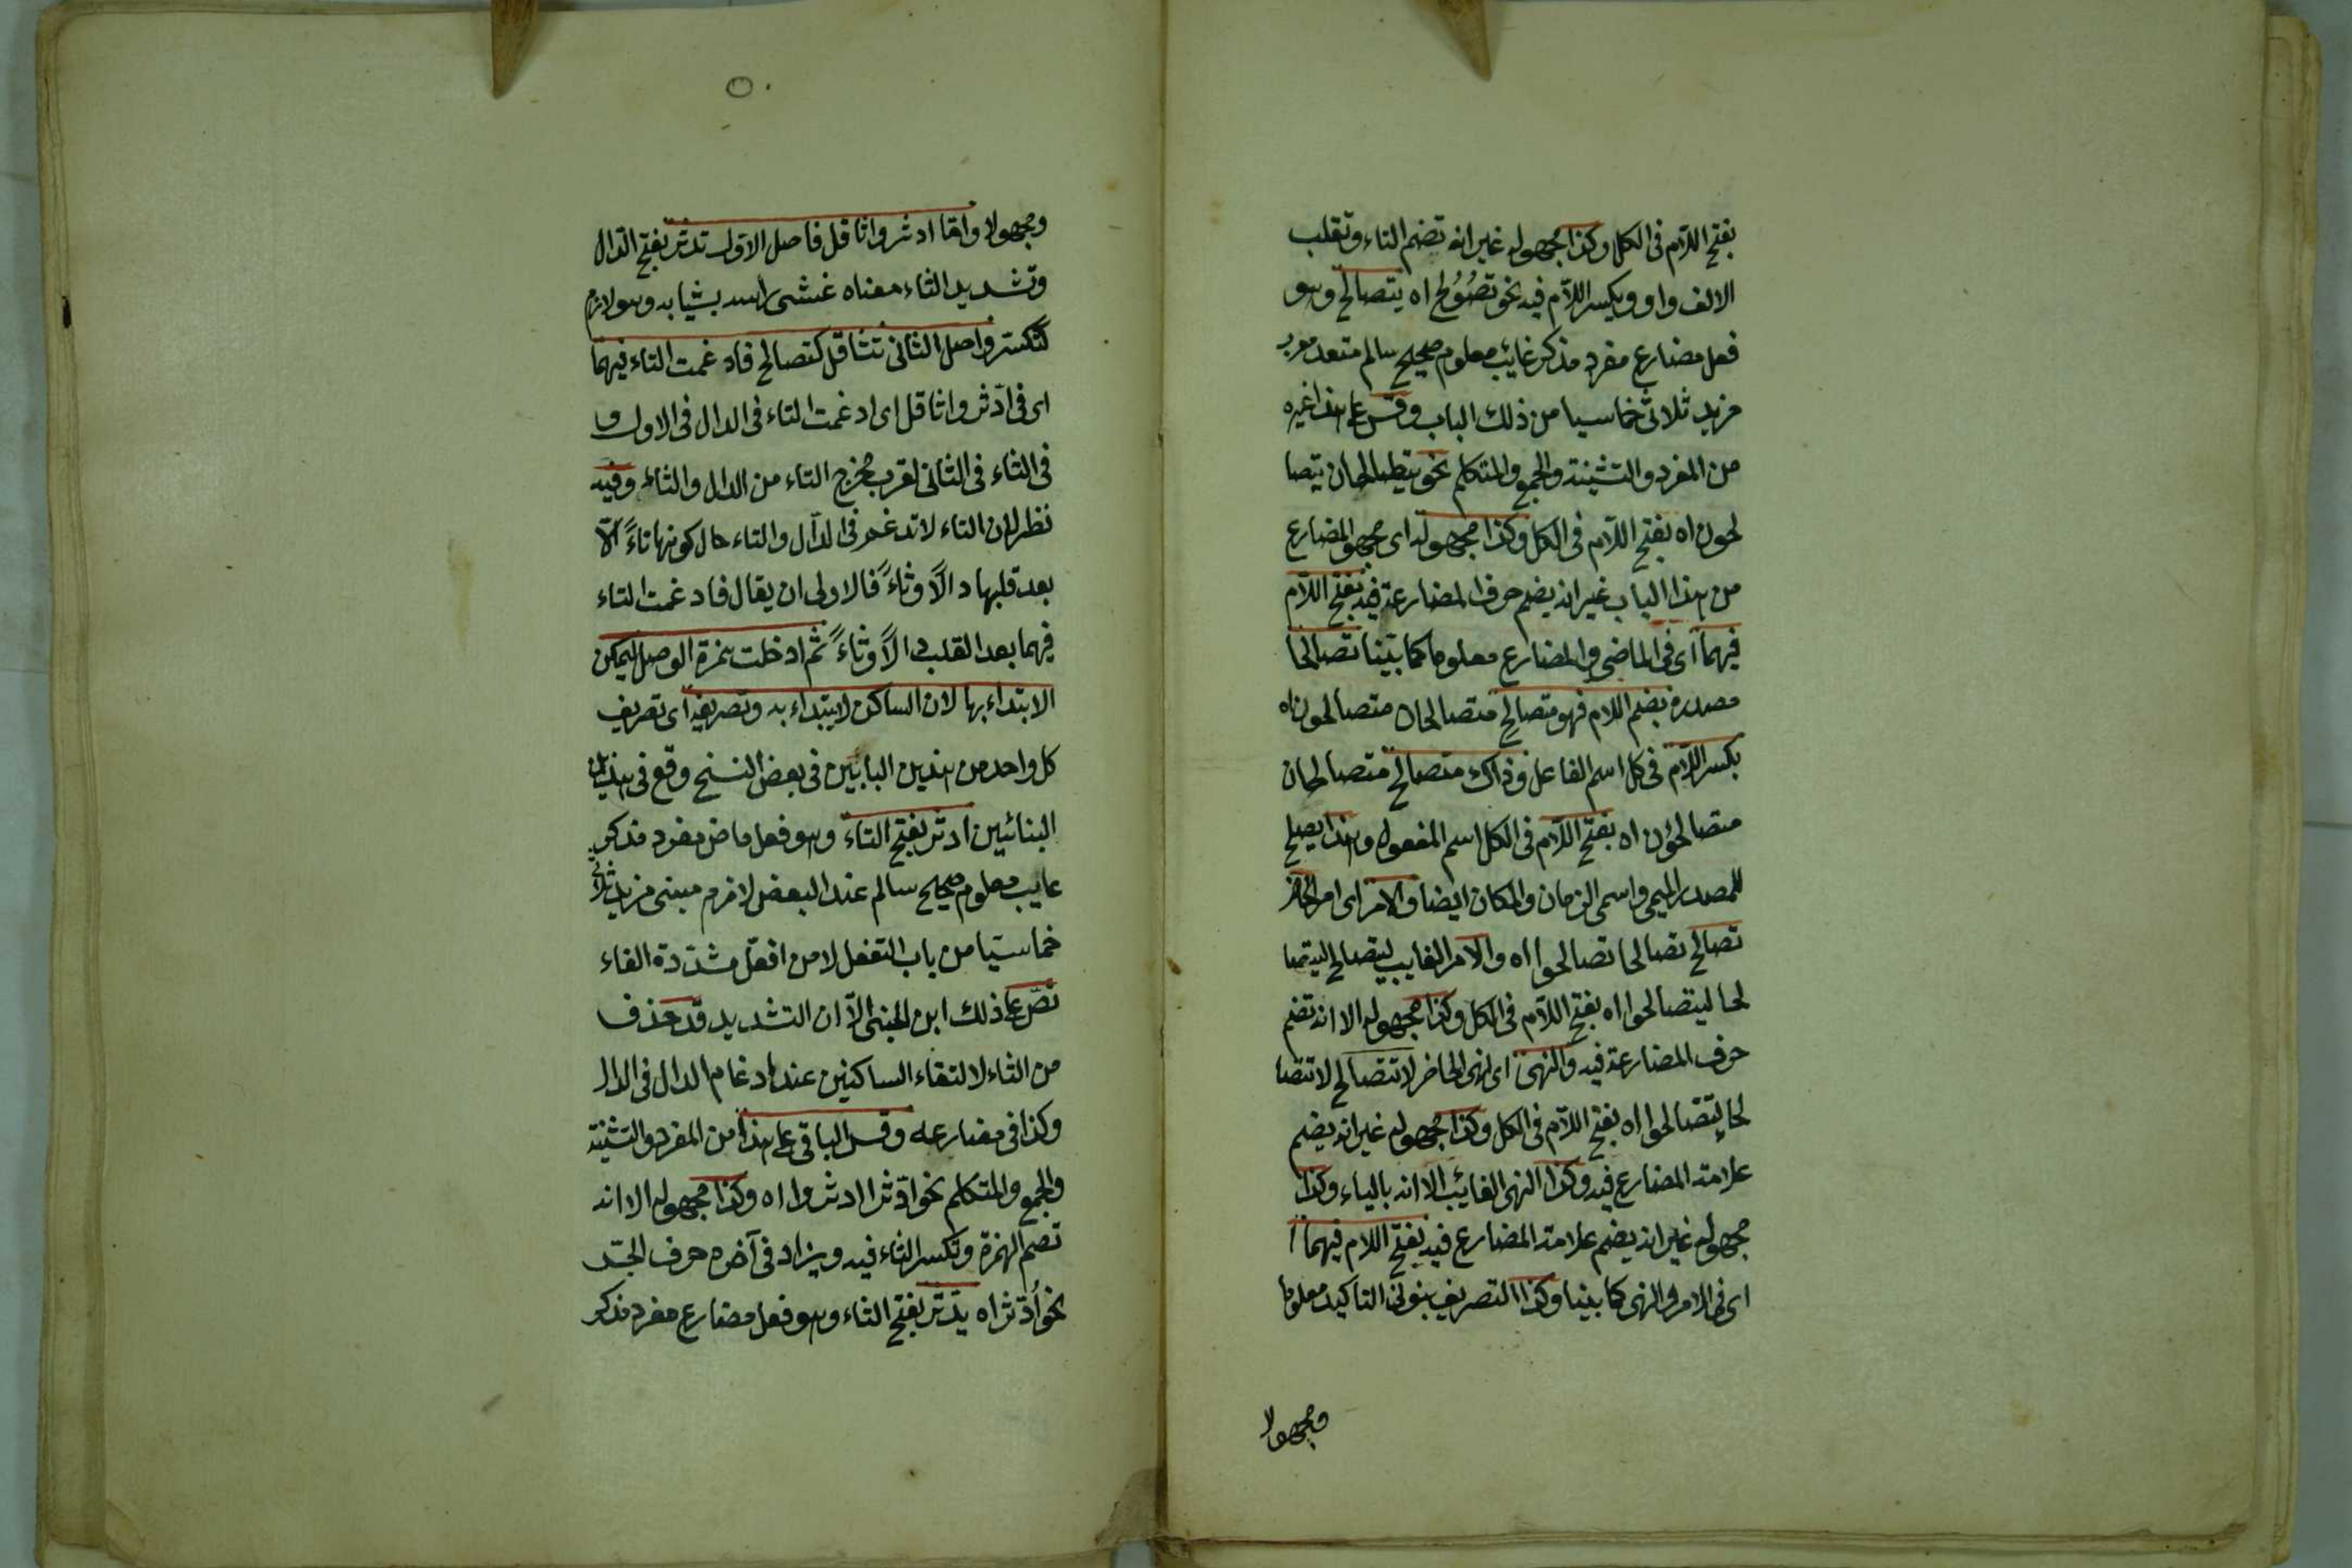 بفتح اللّام فى الكل وكذا مجهوله غير انه تضم التاء وتقلب
الالف واو ويكسر اللّام فيه نحو تُصُوُلح اه يتصالح وهو
فعل مضارع مفرد مذكر غائب معلوم صحيح سالم متعد معرب
مزيد ثلاثى خماسيا من ذلك الباب وقس على هذا غيره
من المفرد والتثنية والجمع والمتكلم نحو يتصالحان يتصا
لحون اه بفتح اللّام فى الكل وكذا مجهوله اى مجهول المضارع
من هذا الباب غير انه يضم حرف المضارعة فيه بفتح اللّام
فيهما اى فى الماضى والمضارع معلوما كما بيّنا تصالحا
مصدره بضم اللام فهو متصالح متصالحان متصالحون اه
بكسر اللّام فى كل اسم الفاعل وذاك متصالح متصالحان
متصالحون اه بفتح اللّام فى الكل اسم المفعول وهذا يصلح
للمصدر الميمى واسمى الزمان والمكان ايضا والامر اى امر الحاضر
تصالح تصالحا تصالحوا اه والامر الغايب ليتصالح ليتصا
لحا ليتصالحوا اه بفتح اللّام فى الكل وكذا مجهوله الا انه تضم
حرف المضارعة فيه والنهى اى نهى الحاضر لا تتصالح لا تتصا
لحا لا تتصالحوا اه بفتح اللّام فى الكل وكذا مجهوله غير انه يضم
علامة المضارع فيه وكذا النهى الغائب الا انه بالياء وكذا
مجهوله غير انه يضم علامة المضارع فيه بفتح اللام فيهما
اى فى الامر والنهى كما بينا وكذا التصريف بنونى التاكيد معلوما
ومجهولا
ومجهولا واما ادثر واثاقل فاصل الاول تدثر بفتح الدال
وتشديد الثاء معناه غشى راسه بثيابه وهو لازم
كتكسّر واصل الثانى تثاقل كتصالح فادغمت التاء فيهما
اى فى ادّثر واثاقل اى ادغمت التاء فى الدال فى الاول و
فى الثاء فى الثانى لقرب مخرج التاء من الدال والثاء وفيه
نظر لان التاء لا تدغم فى الدّال والثاء حال كونها تاءً الّا
بعد قلبها دالًا وثاءً فالاولى ان يقال فادغمت التاء
فيهما بعد القلب دالًا وثاءً ثم ادخلت همزة الوصل ليمكن
الابتداء بها لان الساكن لا يبتداء به وتصريفه اى تصريف
كل واحد من هذين البابين فى بعض النسخ وقع فى هذين
البنائين ادثر بفتح الثاء وهو فعل ماض مفرد مذكر
غايب معلوم صحيح سالم عند البعض لازم مبنى مزيد ثلاثى
خماسيا من باب التفعل لا من افعّل مشددة الفاء
نصّ على ذلك ابن الجنى الّا ان التشديد قد حذف
من الثاء لالتقاء الساكنين عند ادغام الدال فى الدال
وكذا فى مضارعه وقس الباقى على هذا من المفرد والتثنية
والجمع والمتكلم نحو ادّثرا ادثروا اه وكذا مجهوله الا انه
تضم الهمزة وتكسر الثاء فيه ويزاد فى آخره حرف الجّر
نحو اُدّثر اه يدّثر بفتح الثاء وهو فعل مضارع مفرد مذكر